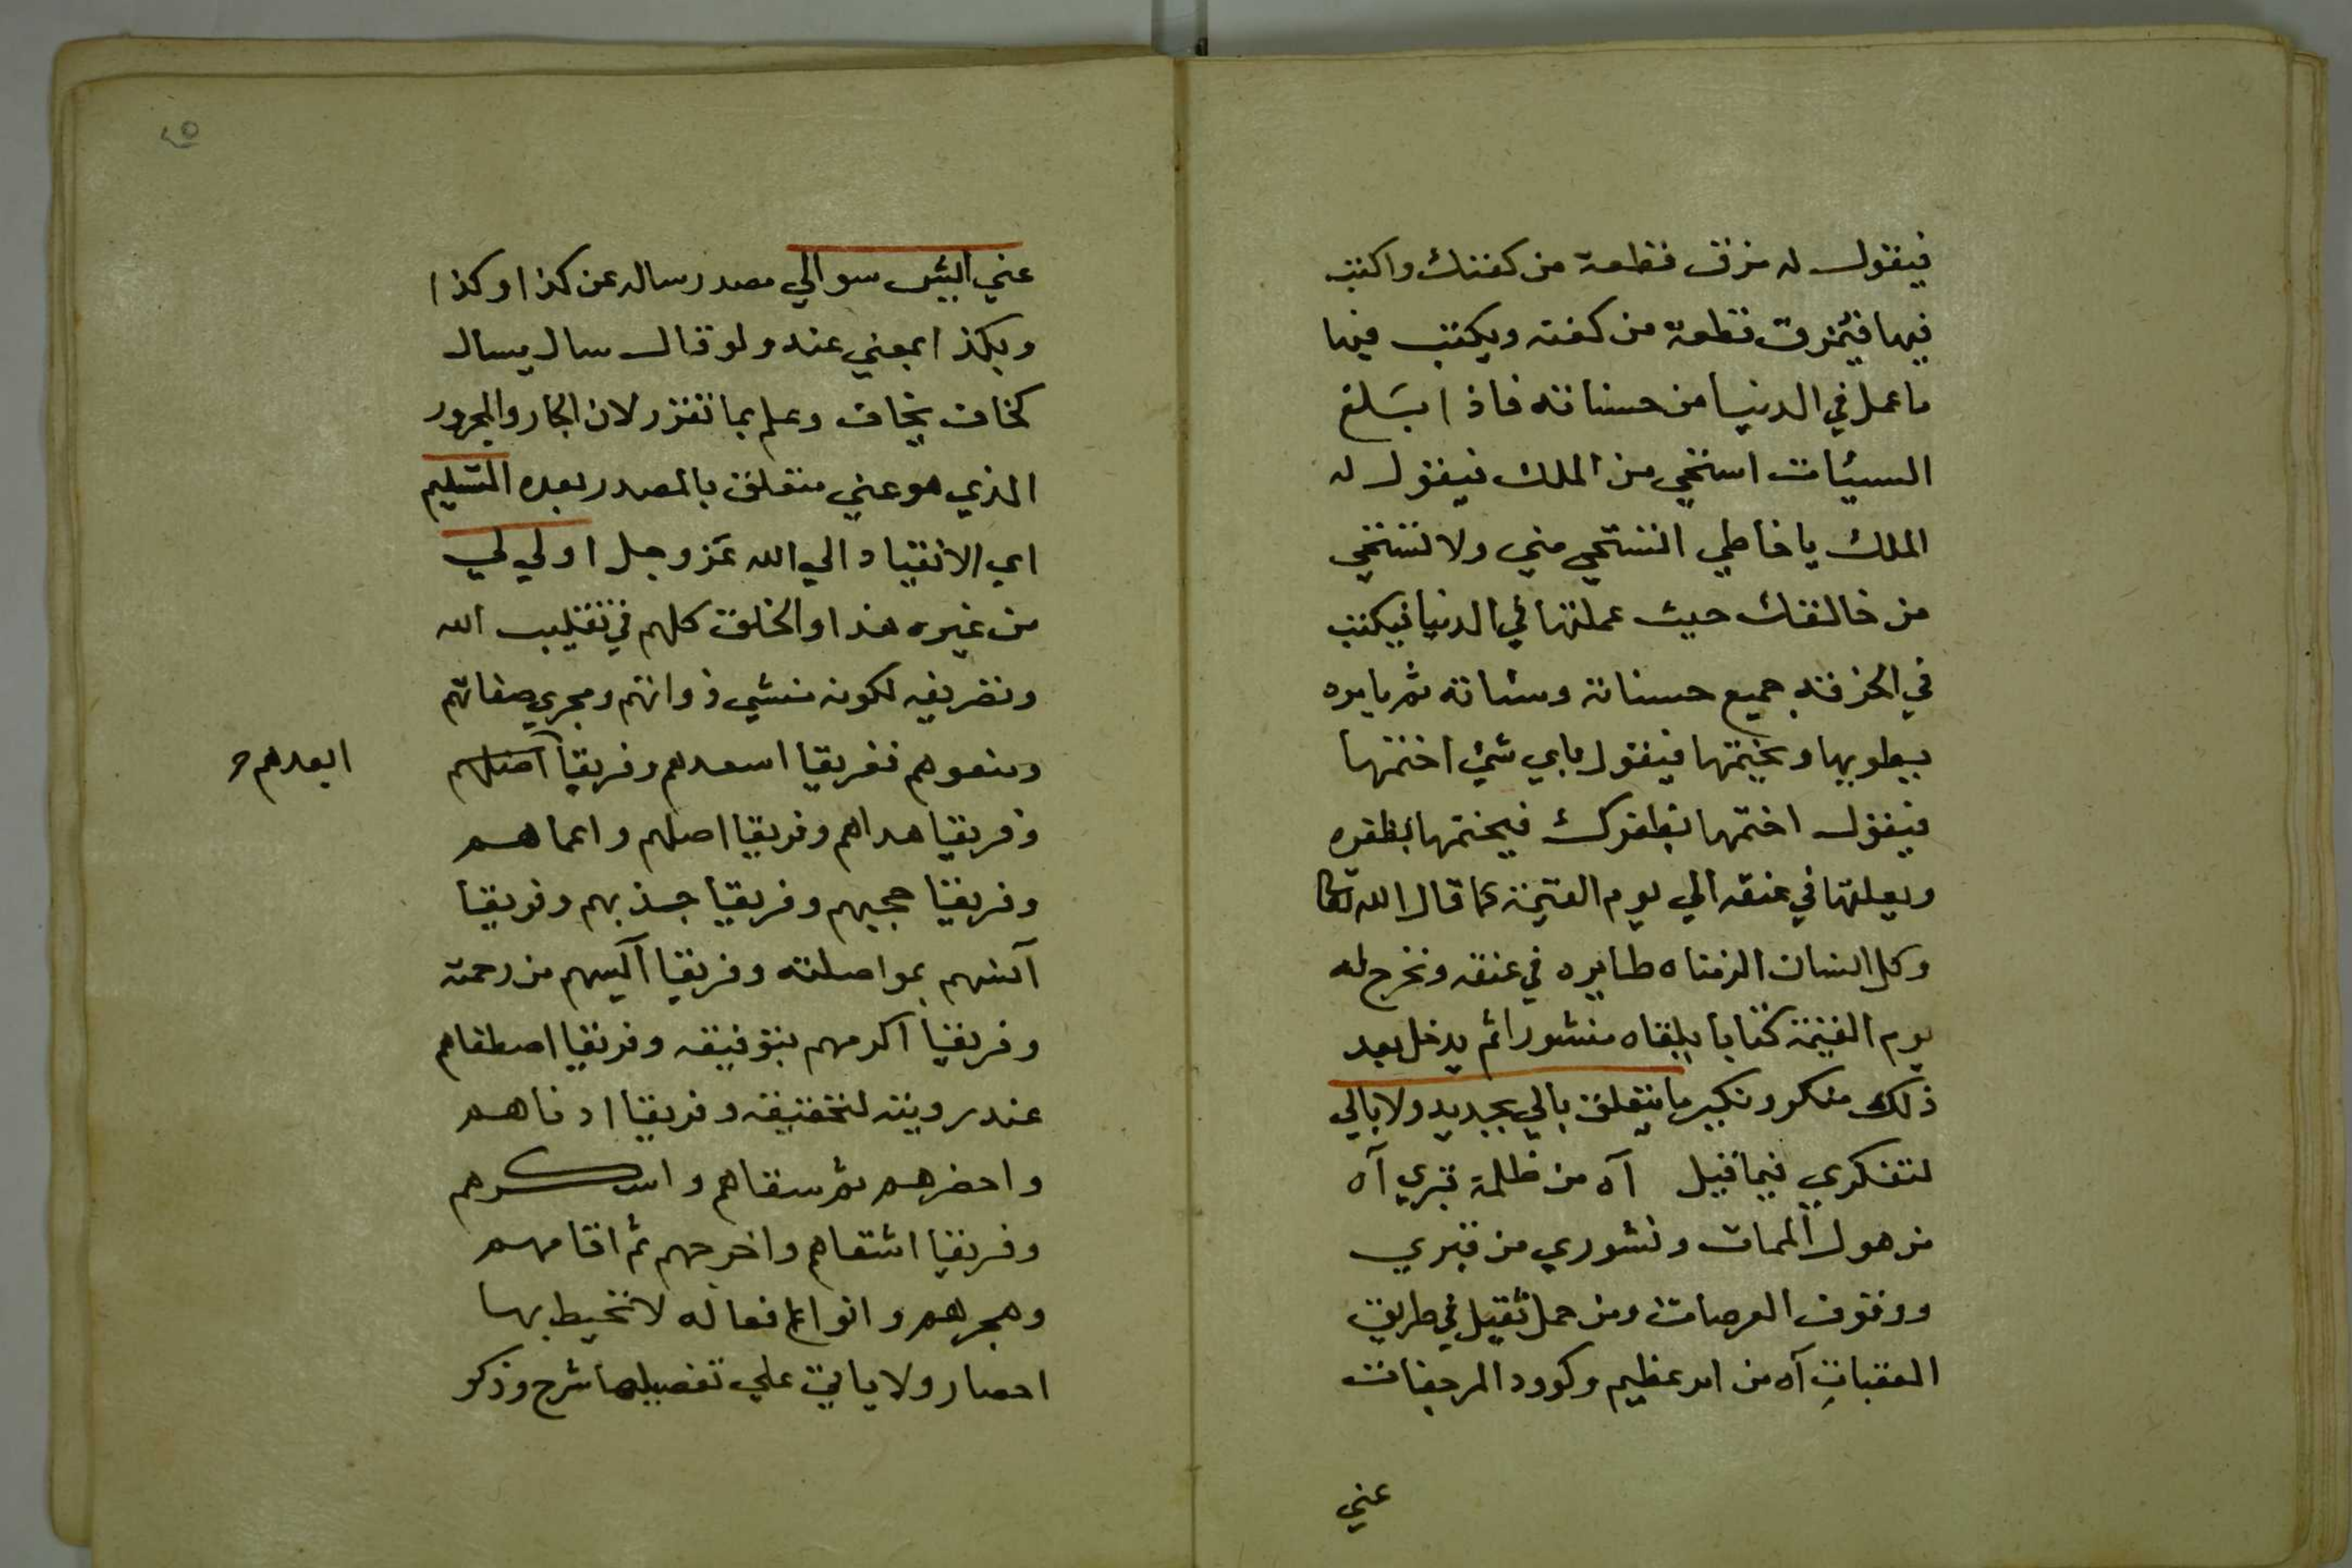 فيقول له مزق قطعة من كفنك واكتب
فيها فيمزق قطعة من كفنه ويكتب فيها
ما عمل في الدنيا من حسناته فاذا بلغ
السيئات استحي من الملك فيقول له
الملك يا خاطي اتستحي مني ولا تستحي
من خالقك حيث عملتها في الدنيا فيكتب
في الخرقة جميع حسناته وسئاته ثم يامره
يطويها ويختمها فيقول باي شئ اختمها
فيقول اختمها بظفرك فيختمها بظفره
ويعلقها في عنقه الي يوم القيمة كما قال الله تعا
وكل انسان الزمناه طايره في عنقه ونخرج له
يوم القيمة كتابا يلقاه منشورا ثم يدخل بعد
ذلك منكر ونكير ما يتعلق بالي بجديد ولا بالي
لتفكري فيما قيل آه من ظلمة قبري آه
من هول الممات ونشوري من قبري
ووقوف العرصات ومن حمل ثقيل في طريق
العقبات آه من امر عظيم وكوود المرجفات
عني
٢٥
عني اليس سوالي مصدر ساله عن كذا وكذا
وبكذا بمعني عنه ولو قال سال يسال
كخاف يخاف وعلم بما تقرر لان الجار والمجرور
الذي هو عني متعلق بالمصدر بعده التسليم
اي الانقياد الي الله عز وجل اولي لي
من غيره هذا والخلق كلهم في تقليب الله
وتصريفه لكونه منشي ذواتهم ومجري صفاتهم
ومنعوهم ففريقا اسعدهم وفريقا اضلهم
ابعدهم
وفريقا هداهم وفريقا اصلهم واعماهم
وفريقا حجبهم وفريقا جذبهم وفريقا
آنسهم بمواصلته وفريقا آليسهم من رحمته
وفريقا اكرمهم بتوفيقه وفريقا اصطفاهم
عند رويته لتحقيقه وفريقا ادناهم
واحضرهم ثم سقاهم واسكرهم
وفريقا اشقاهم واخرجهم ثم اقامهم
وهجرهم وانواع افعاله لا تحيط بها
احصار ولا ياتي علي تفصيلها شرح وذكر